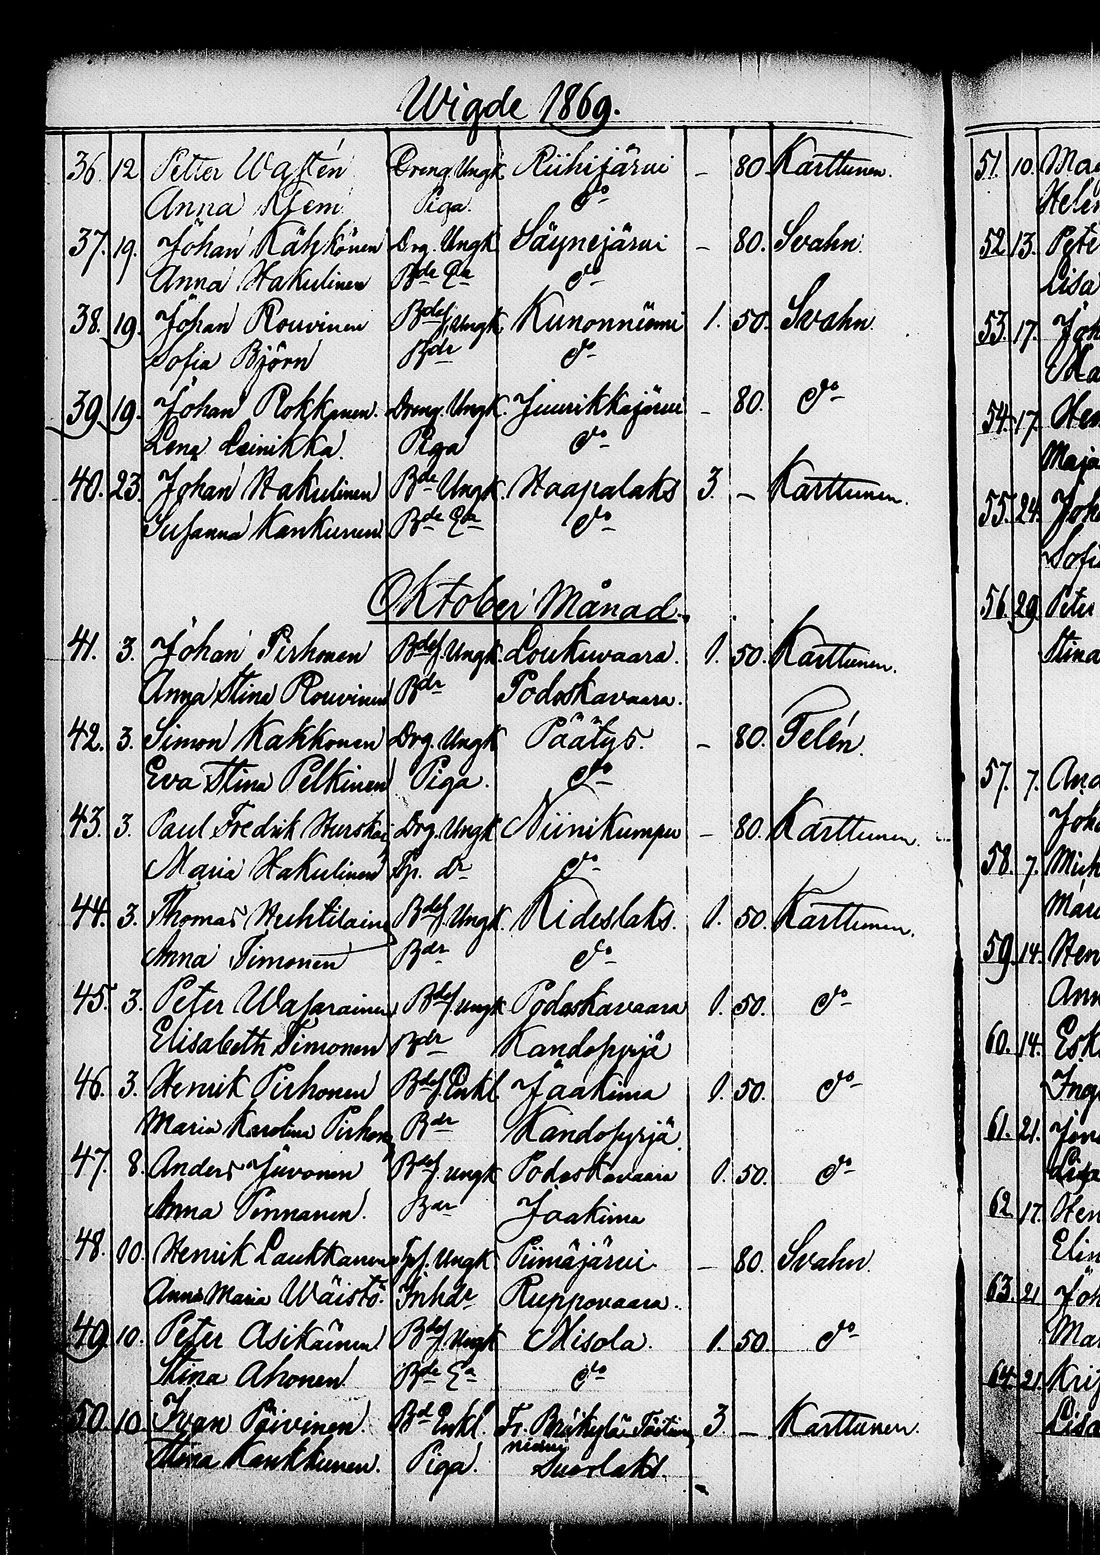 Wigde 1869.
36. 12. Petter Wastén Dreng. Ungk. Riihijärvi - 80. Karttunen.
Anna Klem Piga. do
37. 19. Johan Kähkönen Drg. Ungk. Säynejärvi - 80. Svahn.
Anna Hakulinen Bde Ea do
38. 19. Johan Rouvinen Bdes. Ungk. Kunonniemi 1. 50. Svahn
Sofia Björn Bdr do
39. 19. Johan Rokkanen. Dreng. Ungk. Juurikkajärvi - 80. do
Lena Leinikka. Piga do
40. 23. Johan Hakulinen Bde Ungk. Haapalaks 3. - Karttunen.
Susanna Kankunen Bde Ea do
Oktober Månad.
41. 3. Johan Pirhonen Bdes. Ungk. Loukuvaara. 1. 50. Karttunen.
Anna Stina Rouvinen Bdr Podoskavaara.
42. 3. Simon Kakkonen Drg. Ungk Päätys. - 80. Telén.
Eva Stina Pelkinen Piga. do
43. 3. Paul Fredrik Hurskai Drg. Ungk Niinikumpu - 80. Karttunen.
Maria Hakulinen Tp. dr do
44. 3. Thomas Huhtilainen Bdes. Ungk. Kideslaks. 1. 50. Karttunen.
Anna Timonen Bdr do
45. 3. Peter Wasarainen Bdes. Ungk Podoskavaara 1. 50. do
Elisabeth Timonen Bdr Kandopyrjä
46. 3. Henrik Pirhonen Bdes Enkl. Jaakima 1. 50. do
Maria Karolina Pirhonen Bdr Kandopyrjä.
47. 8. Anders Juvonen Bdes. Ungk Podoskavaara 1. 50. do
Anna Pinnanen. Bdr Jaakima
48. 10. Henrik Laukkanen Tps. Ungk Piimäjärvi - 80. Svahn
Anna Maria Wäistö. Inhdr Ruppovaara.
49. 10. Peter Asikainen Bdes. Ungk Misola. 1. 50. do
Stina Ahonen Bde Ea do
50. 10. Ivan Päivinen. Bd. Enkl. Fr. 3. - Karttunen.
Stina Kankkunen. Piga. Suorlaks.
51. 10. Ma
Helen
52. 13. Pete
Lisa
53. 17. Joh
Ma
54. 17. Hen
Maja
55. 24. Joha
Sofi
56. 29. Peter
Stina
57. 7. And
Joha
58. 7. Mich
Mari
59. 14. Hen
Ann
60. 14. Esk
Inge
61. 21.
Lisa
62. 17. Hen
Elin
63. 21. Joh
Mar
64. 21. Kris
Lisa